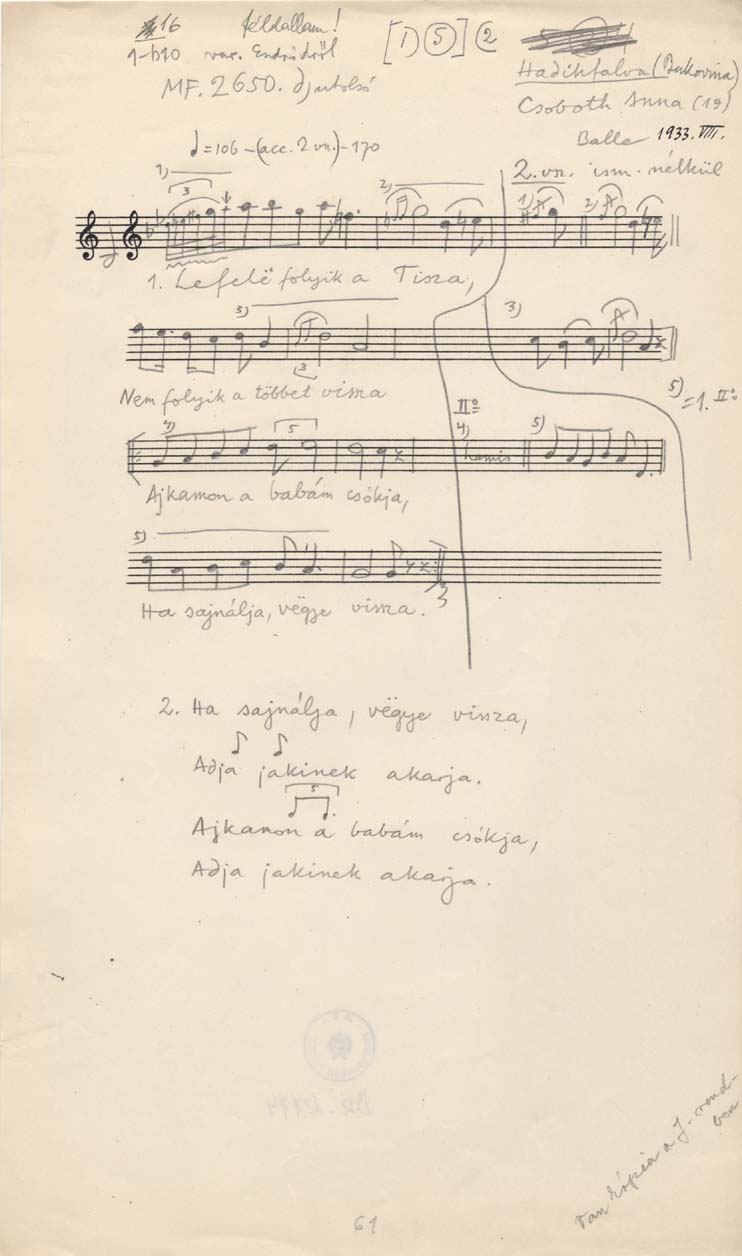 16 Példadallam!
1-b10 var. Endrődről
MF. 2650. d) utolsó
[1) 5] 2
Hadikfalva (Bukovina)
Csoboth Anna (19)
Balla 1933. VIII.
♩=106-(acc. 2 vn.)-170
2. vsz. ism. nélkül
1) 3 2) 1) 2)
1. Lefelé folyik a Tisza,
3) 3 3)
Nem folyik a többet vissza
5) =1. IIº
IIº
4) 5 4) hamis 5)
Ajkamon a babám csókja,
5)
Ha sajnálja, vëgye vissza.
2. Ha sajnálja, vëgye vissza,
Adja jakinek akarja.
5
Ajkamon a babám csókja,
Adja jakinek akarja.
Van kópia a J. rend-
ben
61